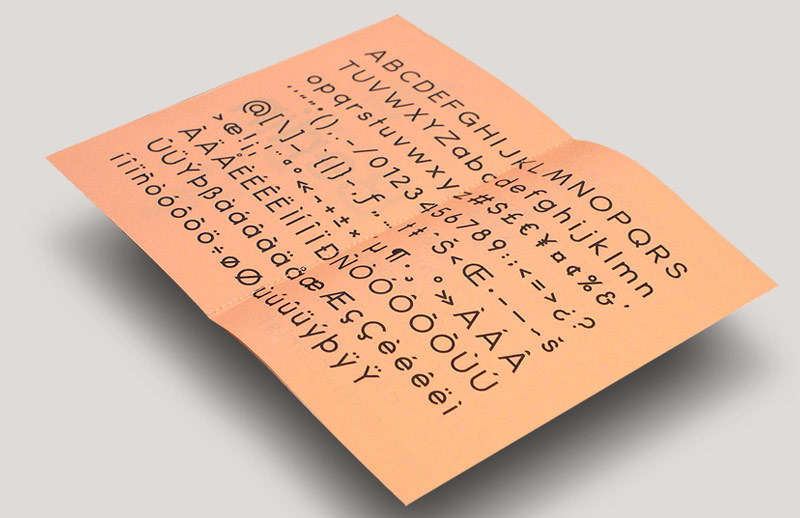 ABCDEFGHIJKLMNOPQRS
TUVWXYZabcdefghijklmn
opqrstuvwxyz#$£€¥¤¢%&
(),.-/0123456789:;<=>¿?
@[\]_`{|}~‚ƒ„…†‡ˆŠ‹Œ•–—~š
›œ!¡¦¨ªº«¬+±×µ¶·¸°»ÀÁÂ
ÃÄÅÈÉÊËÌÍÎÏÐÑÒÓÔÕÖÙÚ
ÛÜÝÞßàáâãäåæÆçÇèéêëì
íîïñòóôõö÷øØùúûüýþÿŸ